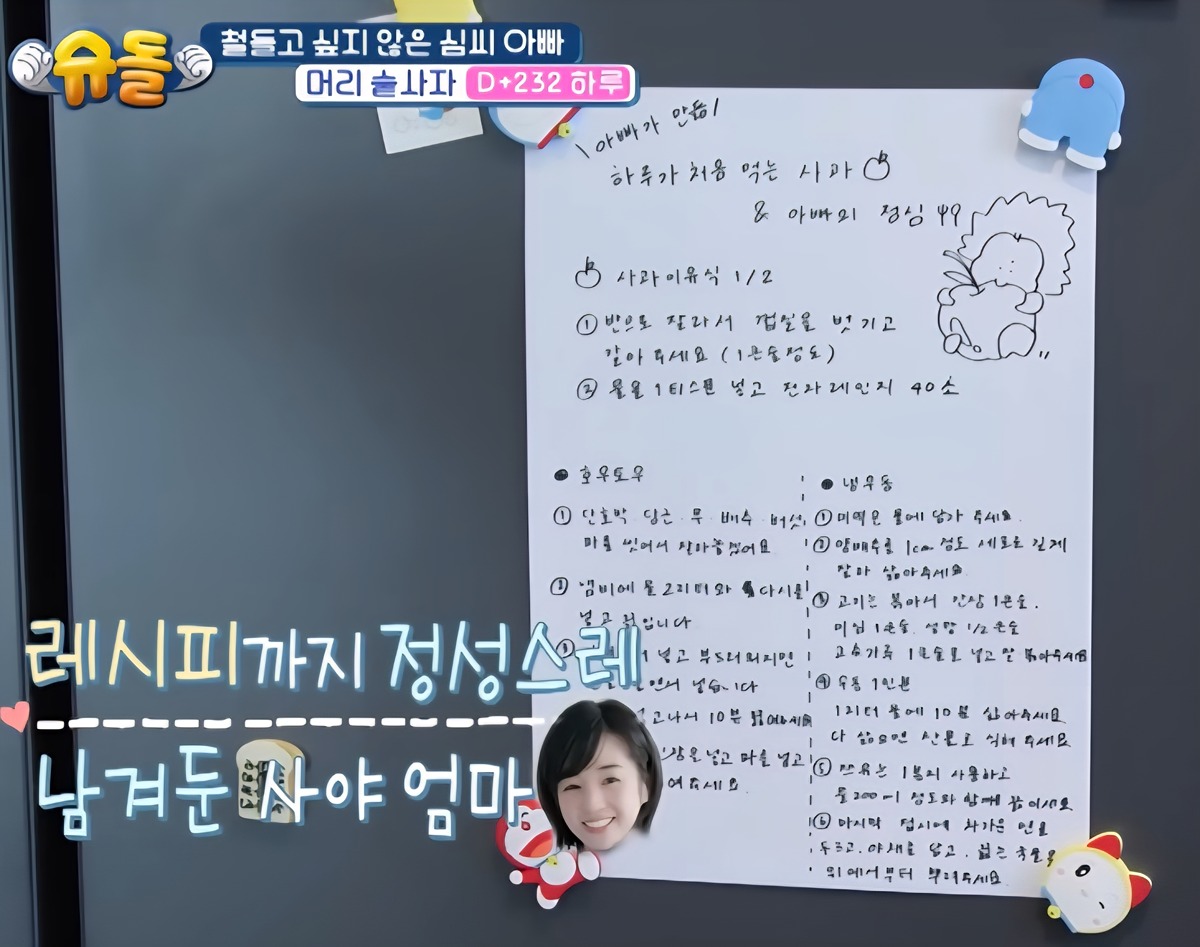 슈돌
철들고 싶지 않은 심씨 아빠
머리 술사자 D+232 하루
\ 아빠가 만듦 /
하루가 처음 먹는 사과
& 아빠의 점심
사과이유식 1/2
① 반으로 잘라서 껍질을 벗기고
갈아 주세요 (1큰술정도)
② 물을 1티스푼 넣고 전자레인지 40초
● 호우토우
① 단호박 · 당근 · 무 · 배추 · 버섯,
파를 씻어서 잘라놓았어요
② 냄비에 물 2리터와 다시를
넣고 끓입니다
③ 넣고 부드러워지면
넣습니다
넣고나서 10분
된장을 넣고 파를 넣고
주세요.
● 냉우동
① 미역은 물에 담가 주세요.
② 양배추를 1cm 정도 세로로 길게
잘라 삶아주세요.
③ 고기는 볶아서 간장 1큰술.
미림 1큰술. 설탕 1/2큰술
고춧가루 1큰술로 넣고 잘 볶아주세요
④ 우동 1인분
1리터 물에 10분 삶아주세요
다 삶으면 찬물로 식혀 주세요
⑤ 쯔유는 1봉지 사용하고
물200ml 정도와 함께
⑥ 마지막 접시에 차가운 면을
두르고. 야채를 담고. 국물을
위에서부터 뿌려주세요.
레시피까지 정성스레
남겨둔 사야 엄마